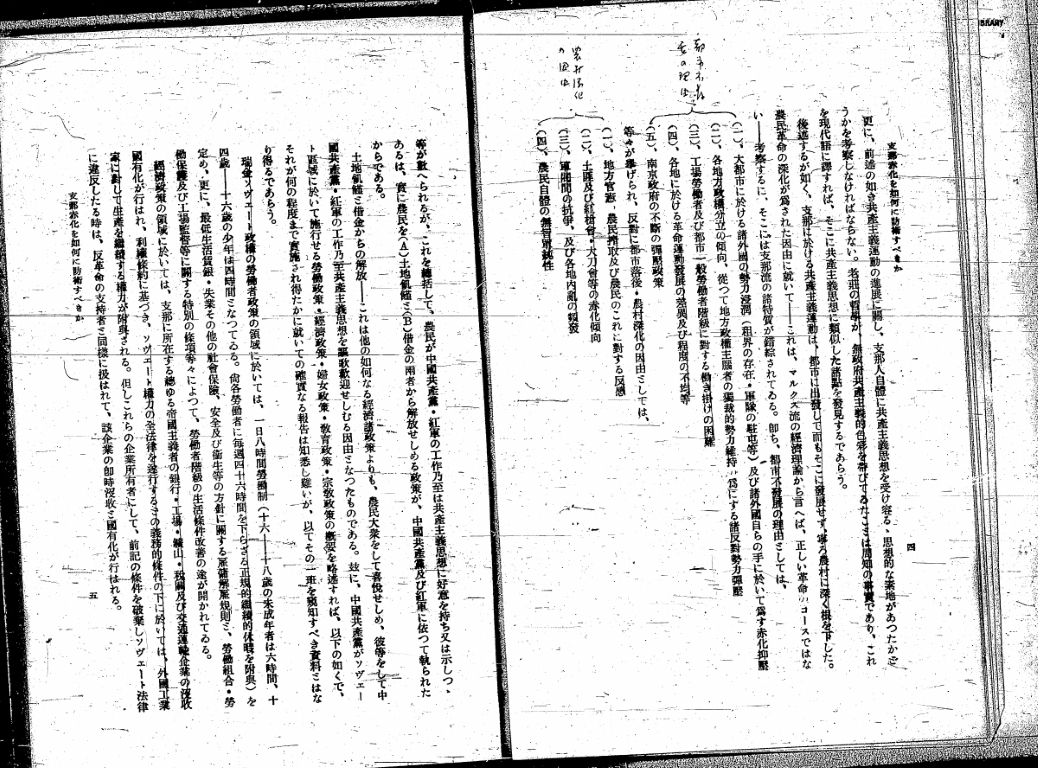 支那赤化を如何に防衛すべきか
四
更に、前述の如き共產主義運動の進展に關し、支那人自體に共產主義思想を受け容る、思想的な素地があつたかど
うかを考察しなければならない。老莊の哲學が、無政府共產主義的色彩を帶びてゐたことは周知の事實であり、これ
を現代語に譯すれば、そこに共產主義思想に類似した諸點を發見するであらう。
後述するが如く、支那に於ける共產主義運動は、都市に出發して而もそこに發展せず、寧ろ農村に深く根を下した。
農民革命の深化が爲された因由に就いて——これは、マルクス流の經濟理論から言へば、正しい革命のコースではな
い——考察するに、そこには支那流の諸特質が錯綜されてゐる。卽ち、都市不發展の理由としては、
(一)、大都市に於ける諸外國の勢力浸潤(租界の存在・軍隊の駐屯等)及び諸外國自らの手に於いて爲す赤化抑壓
(二)、各地方政權分立の傾向、從つて地方政權主腦者の獨裁的勢力維持の爲にする諸反對勢力彈壓
(三)、工場勞働者及び都市一般勞働者階級に對する働き掛けの困難
(四)、各地に於ける革命運動發展の差異及び程度の不均等
(五)、南京政府の不斷の彈壓政策
等々が擧げられ、反對に都市落後・農村深化の因由としては、
(一)、地方官憲・農民搾取及び農民のこれに對する反感
(二)、土匪及び紅槍會・大刀會等の赤化傾向
(三)、軍閥間の抗爭、及び各地內亂の頻發
(四)、農民自體の無智單純性
都市不發
展の理由
農村深化
の因由
等が數へられるが、これを總括して、農民が中國共產黨・紅軍の工作乃至は共產主義思想に好意を持ち又は示しつゝ
あるは、實に農民を(A)土地飢饉と(B)借金の兩者から解放せしめる政策が、中國共產黨及び紅軍に依つて執られた
からである。
土地飢饉と借金からの解放——これは他の如何なる經濟諸政策よりも、農民大衆をして喜悅せしめ、彼等をして中
國共產黨・紅軍の工作乃至共產主義思想を謳歌歡迎せしむる因由となつたものである。茲に、中國共產黨がソヴェー
ト區域に於いて施行せる勞働政策・經濟政策・婦女政策・敎育政策・宗敎政策の槪要を略述すれば、以下の如くで、
それが何の程度まで實施され得たかに就いての確實なる報告は知悉し難いが、以てその一班を窺知すべき資料とはな
り得るであらう。
瑞金ソヴェート政權の勞働者政策の領域に於いては、一日八時間勞働制(十六——十八歲の未成年者は六時間、十
四歲——十六歲の少年は四時間となつてゐる。尙各勞働者に每週四十六時間を下らざる正規的繼續的休暇を附與)を
定め、更に、最低生活賃銀・失業その他の社會保險、安全及び衞生等の方針に關する雇傭解雇規則と、勞働組合・勞
働保護及び工場監督等に關する特別の條項等々によつて、勞働者階級の生活條件改善の途が開かれてゐる。
經濟政策の領域に於いては、支那に所在する總ゆる帝國主義者の銀行・工場・鑛山・稅關及び交通運輸企業の沒收
國有化が行はれ、利權條約に基づき、ソヴェート權力の全法律を遂行するとの義務的條件の下に於いては、外國工業
家に對して生產を繼續する權力が附與される。但しこれらの企業所有者にして、前記の條件を破棄しソヴェート法律
に違反したる時は、反革命の支持者と同樣に扱はれて、該企業の卽時沒收と國有化が行はれる。
支那赤化を如何に防衛すべきか
五